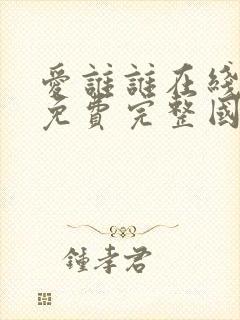 愛誰誰在綫
免費完整國
鍾孝君